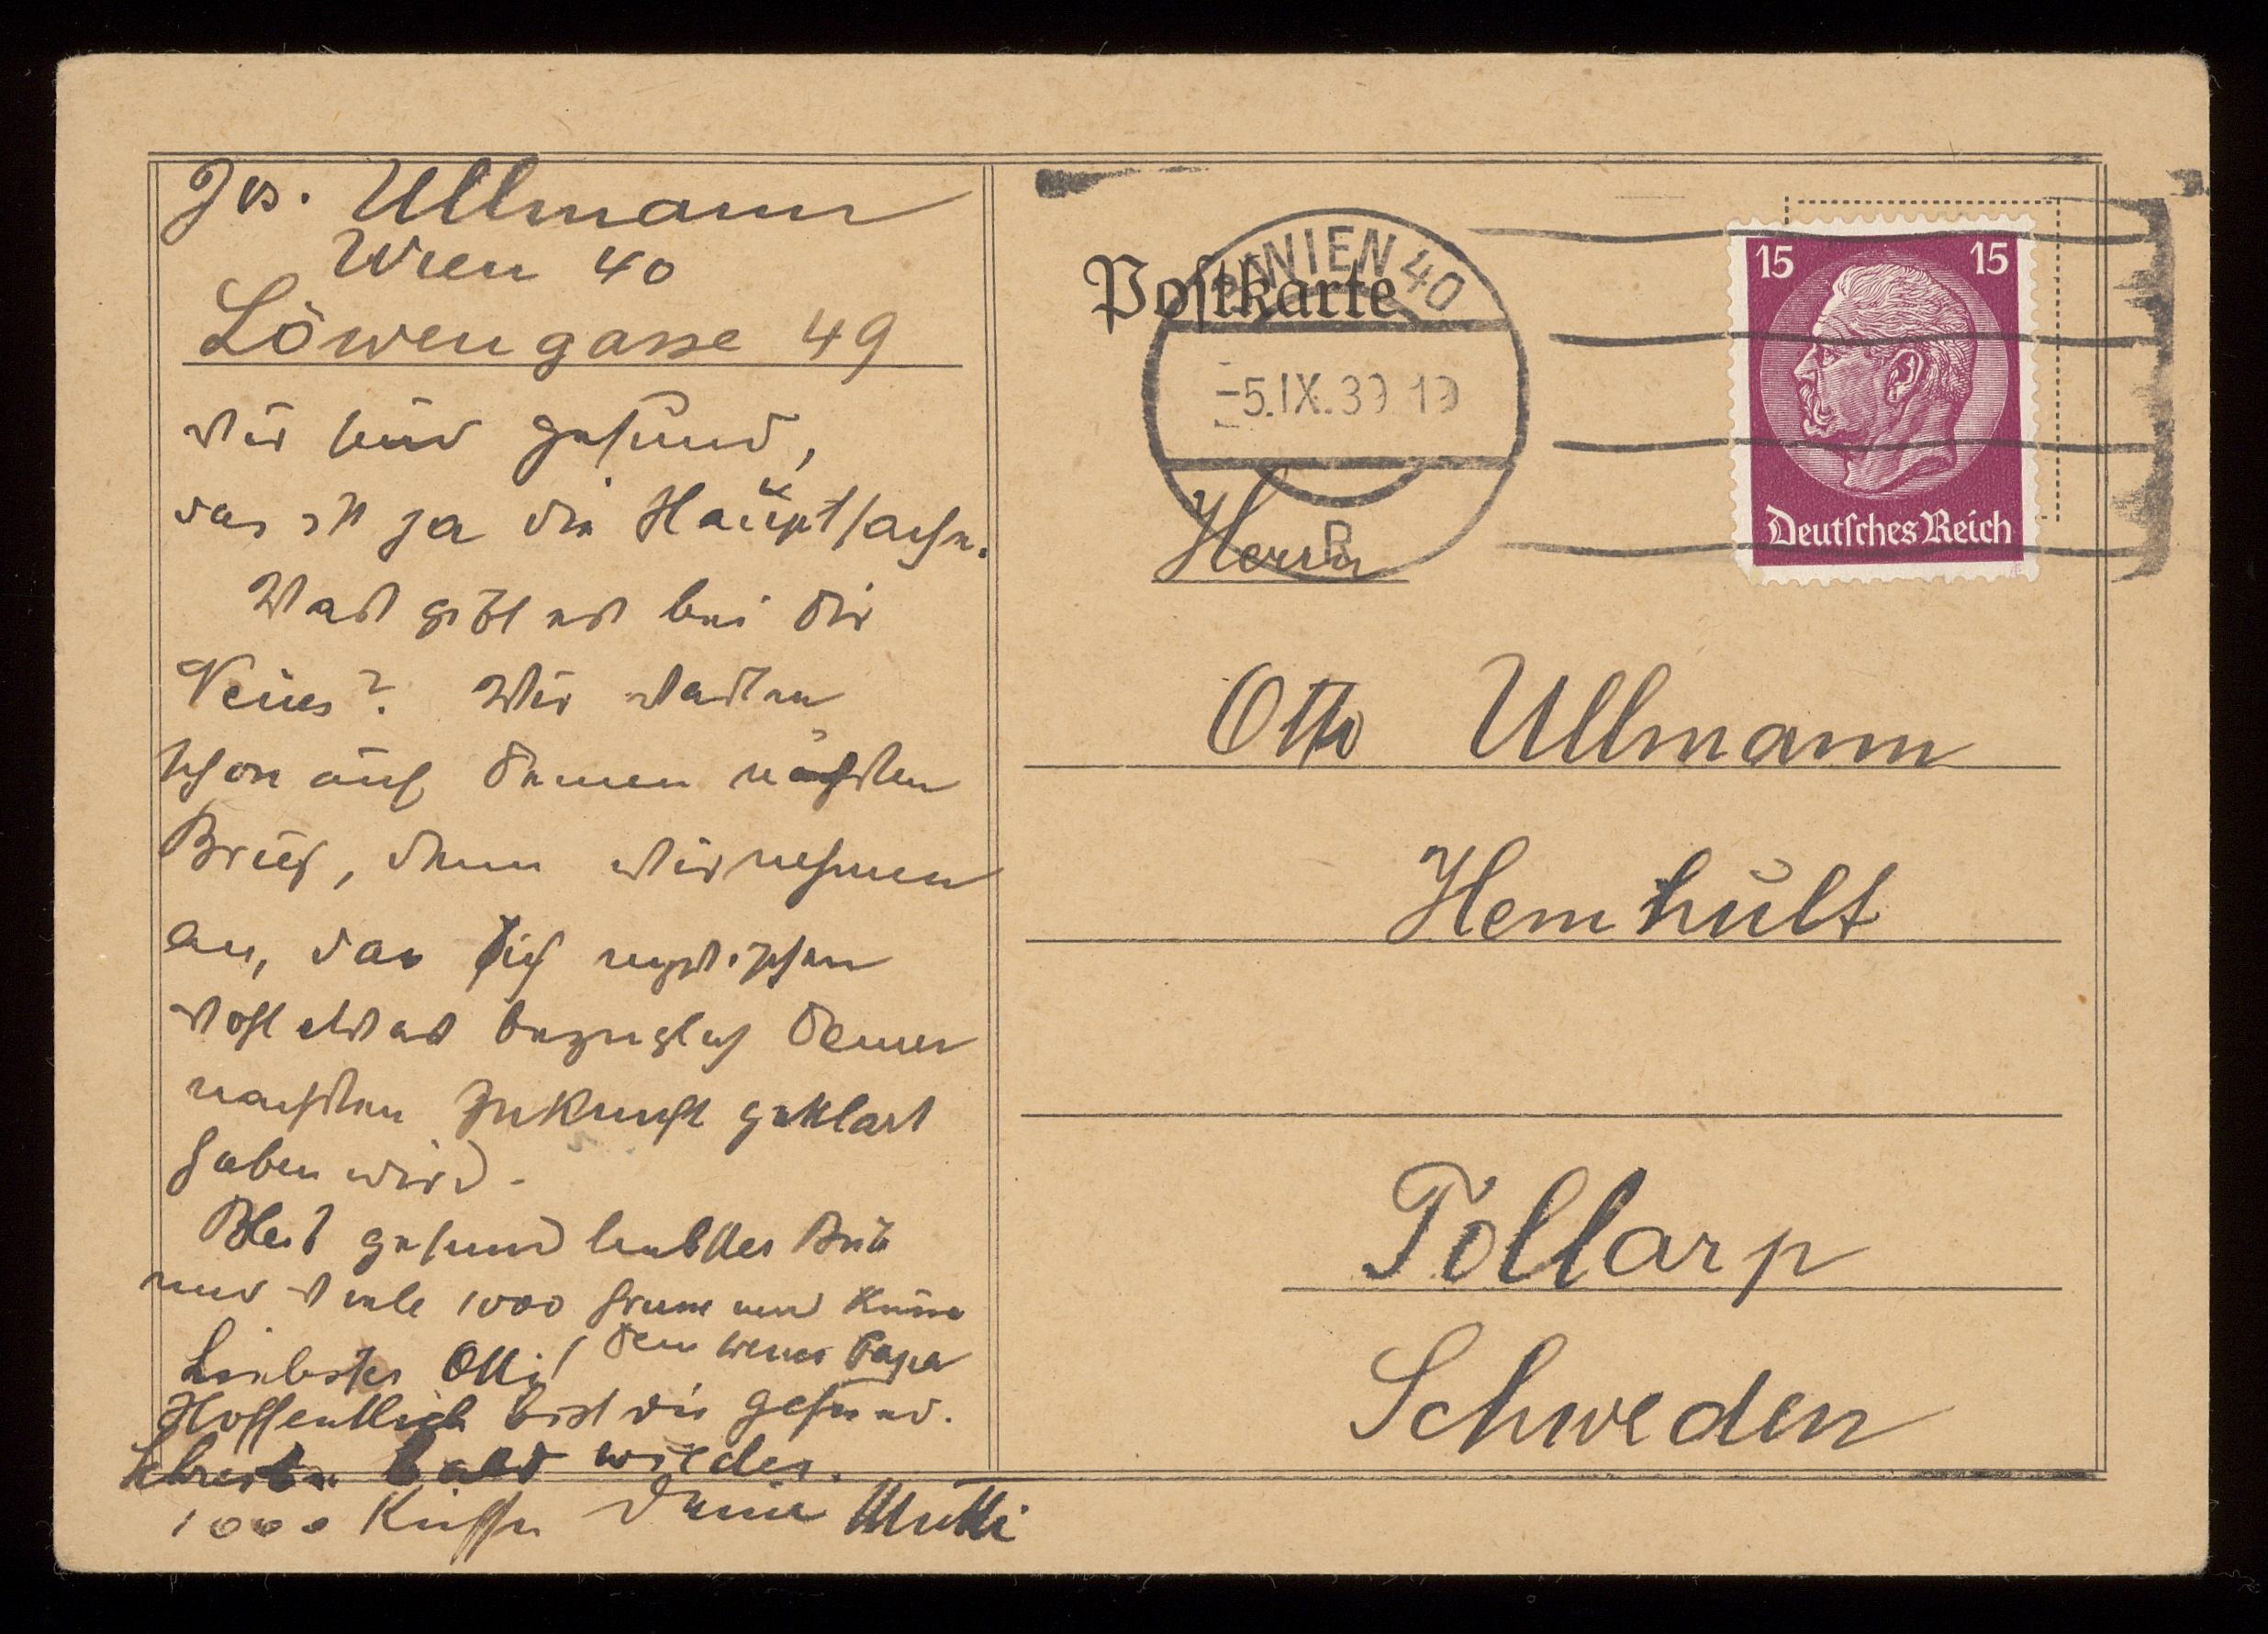 Jos. Ullmann
Wien 40
Löwengasse 49
Wir sind gesund,
das ist ja die Hauptsache.
Was gibt es bei Dir
Neues? Wir warten
schon auf Deinen nächsten
Brief, denn wir nehmen
an, das sich inzwischen
wohl etwas bezüglich Deiner
nächsten Zukunft geklärt
haben wird.
Bleib gesund liebster Bub
und viele 1000 Grüsse und Küsse
Dein Papa
Liebster Otti!
Hoffentlich bist du gesund.
Schreibe bald wieder.
1000 Küsse Deine Mutti
Postkarte
WIEN 40
-5.IX.39 19
15 15
Deutsches Reich
Herrn
Otto Ullmann
Hemhult
Tollarp
Schweden